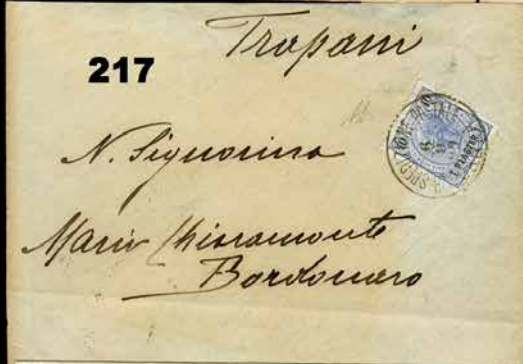 Trapani
217
N. Signorina
Maria Chiaramonte
Bordonaro
1 PIASTER 1